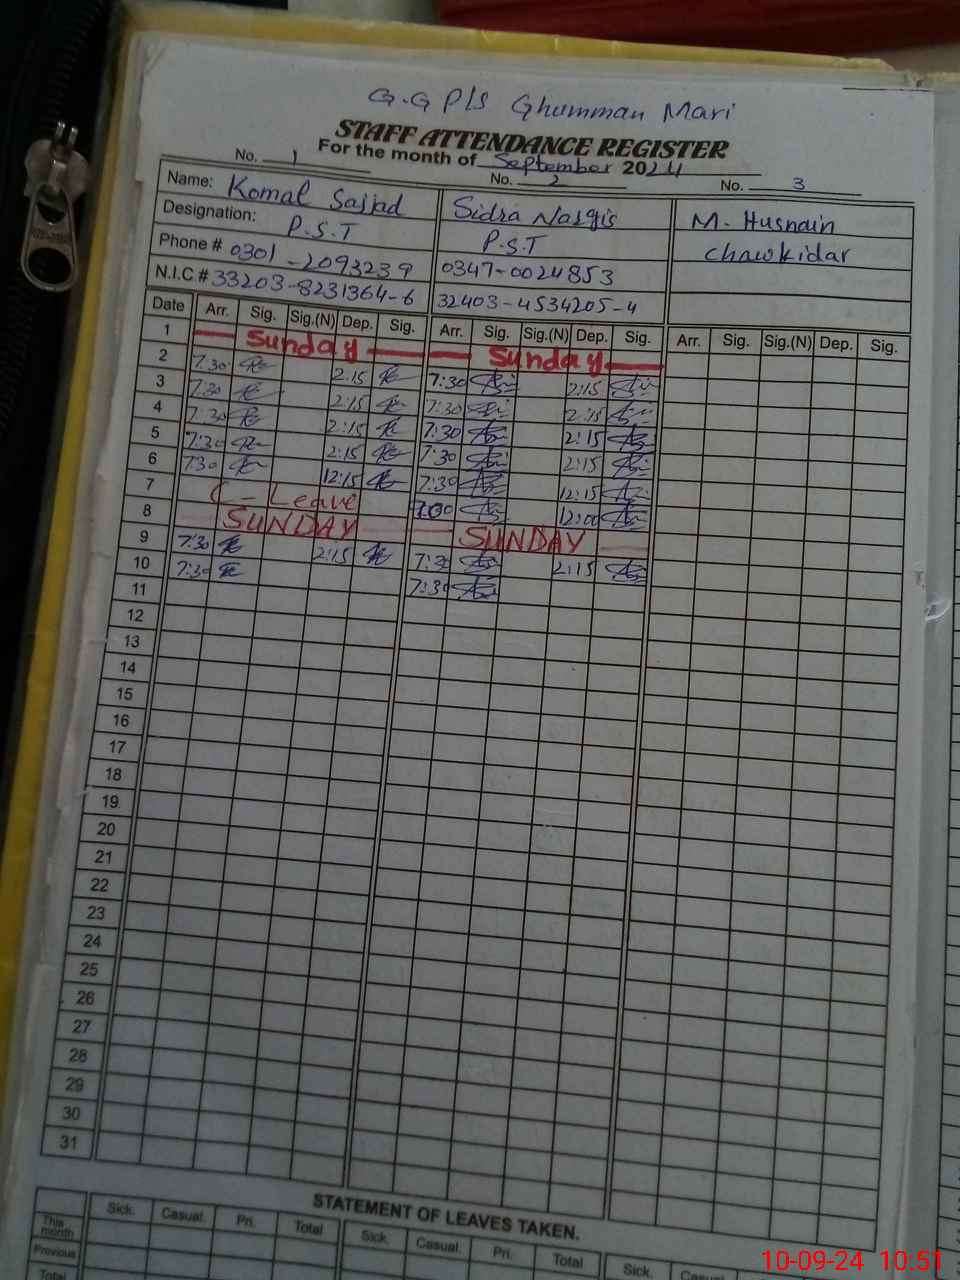 G.G P/S Ghumman Mari
STAFF ATTENDANCE REGISTER
For the month of September 2024
No. 1 No. 2 No. 3
Name: Komal Sajjad Sidra Nargis M. Husnain
Designation: P.S.T P.S.T Chawkidar
Phone # 0301-2093239 0347-0024853
N.I.C # 33203-8231364-6 32403-4534205-4
Date Arr. Sig. Sig.(N) Dep. Sig. Arr. Sig. Sig.(N) Dep. Sig. Arr. Sig. Sig.(N) Dep. Sig.
1 Sunday Sunday
2 7:30 2:15 7:30 2:15
3 7:30 2:15 7:30 2:15
4 7:30 2:15 7:30 2:15
5 7:30 2:15 7:30 2:15
6 7:30 12:15 7:30 12:15
7 C-Leave 7:00 12:00
8 SUNDAY SUNDAY
9 7:30 2:15 7:30 2:15
10 7:30 7:30
11
12
13
14
15
16
17
18
19
20
21
22
23
24
25
26
27
28
29
30
31
STATEMENT OF LEAVES TAKEN.
Sick. Casual. Pri. Total Sick. Casual. Pri. Total Sick. Casual.
This month
Previous
Total
10-09-24 10:51